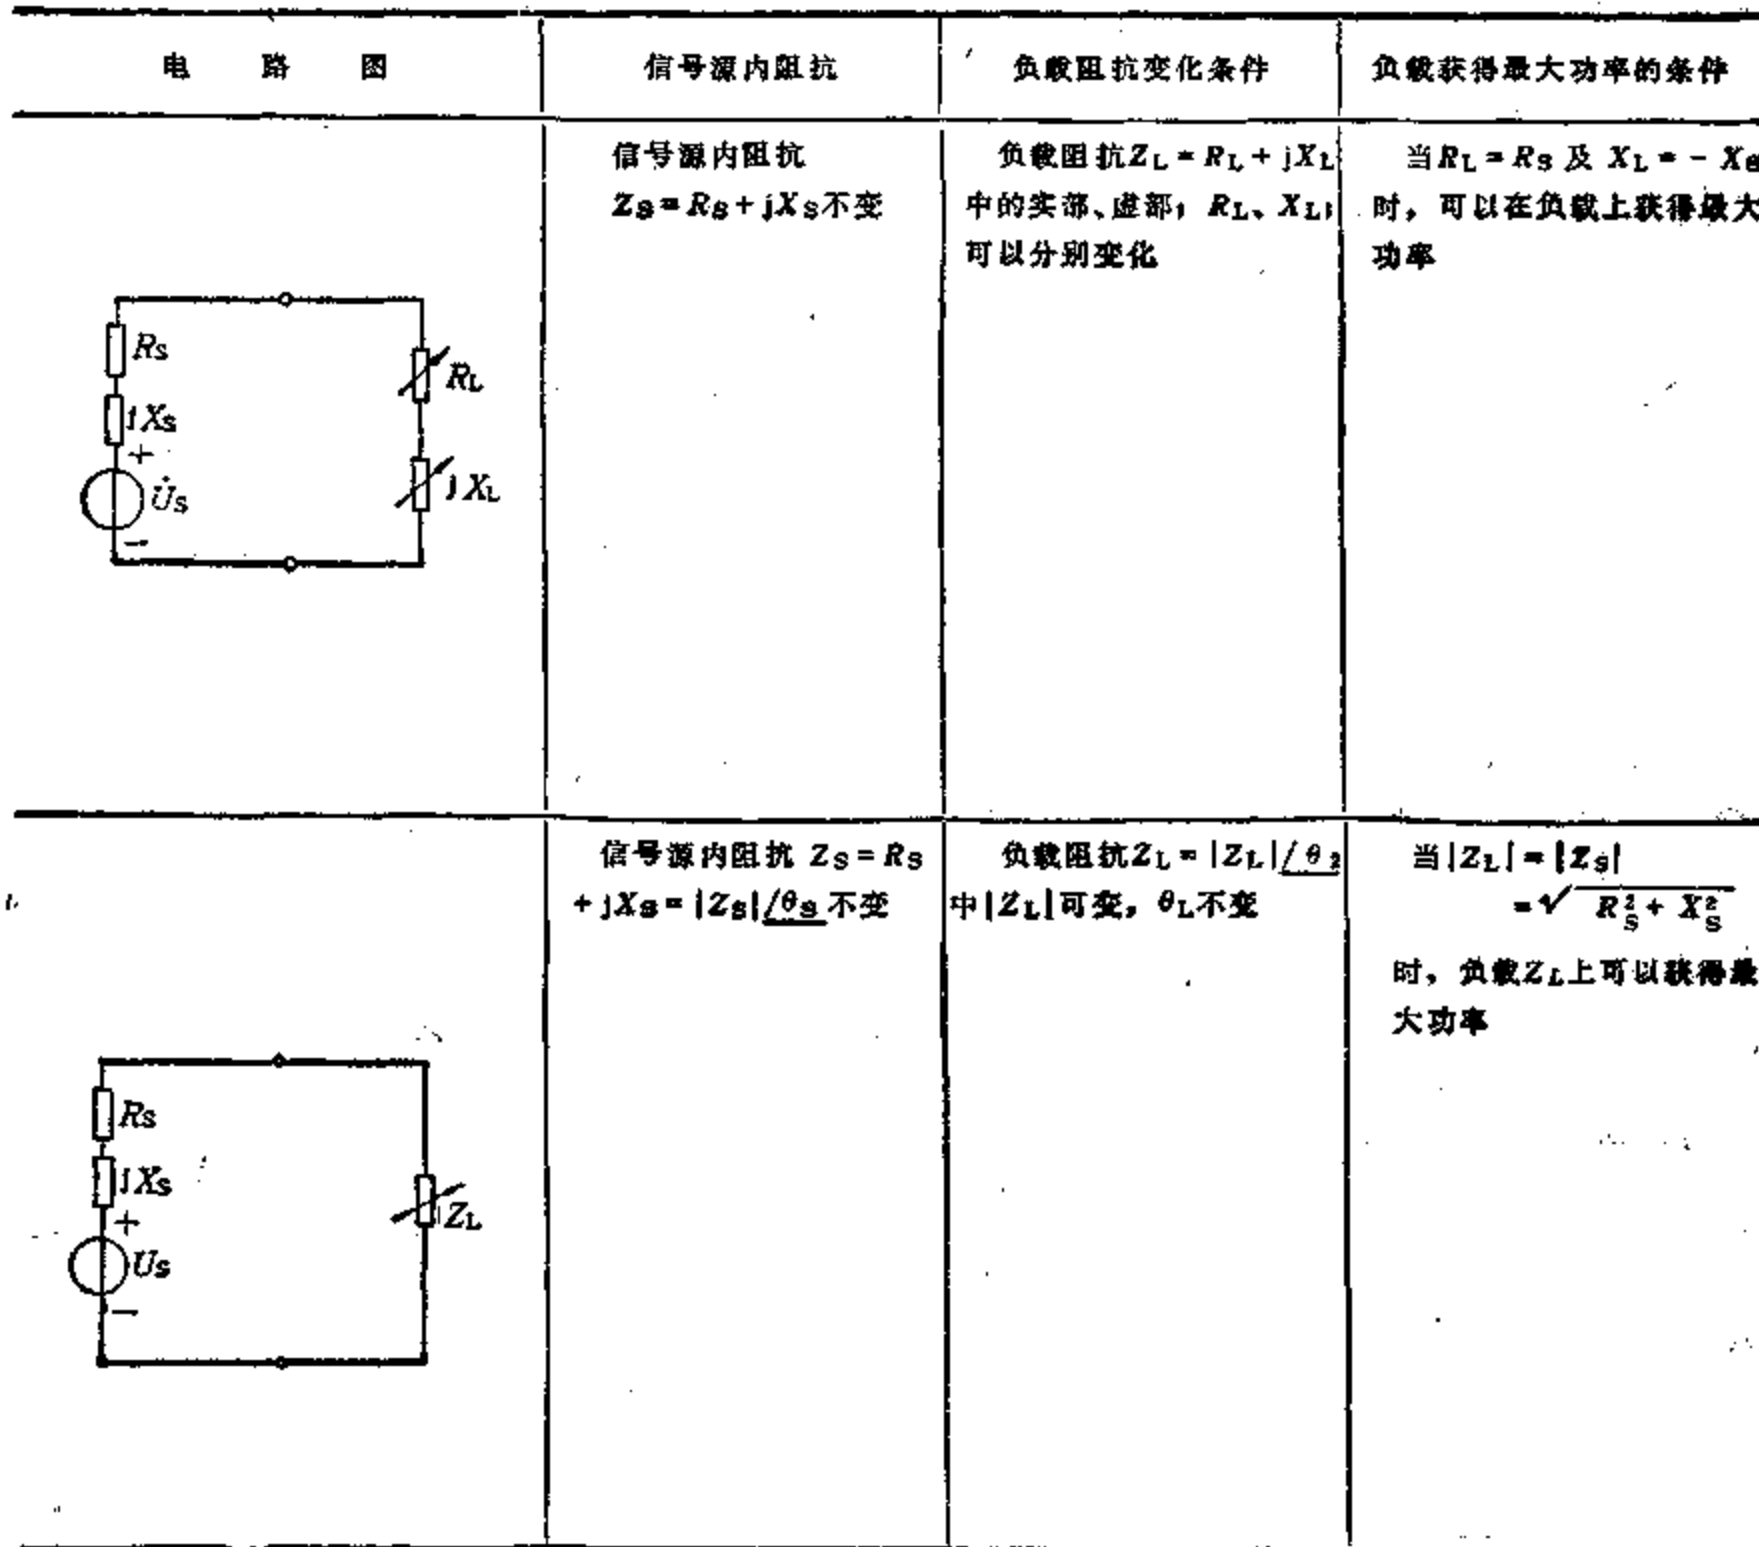 电 路 图
信号源内阻抗
负载阻抗变化条件
负载获得最大功率的条件
信号源内阻抗
Zs=Rs+jXs不变
负载阻抗ZL=RL+jXL
中的实部、虚部；RL、XL；
可以分别变化
当RL=Rs及 XL=-Xs
时，可以在负载上获得最大
功率
Rs
jXs
+
U̇s
−
RL
jXL
信号源内阻抗 Zs=Rs
+jXs=|Zs|/θs 不变
负载阻抗ZL=|ZL|/θ2
中|ZL|可变，θL不变
当|ZL|=|Zs|
=√R²s+X²s
时，负载ZL上可以获得最
大功率
Rs
jXs
+
Us
−
ZL